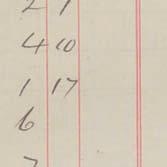 2 1
4 10
1 17
6